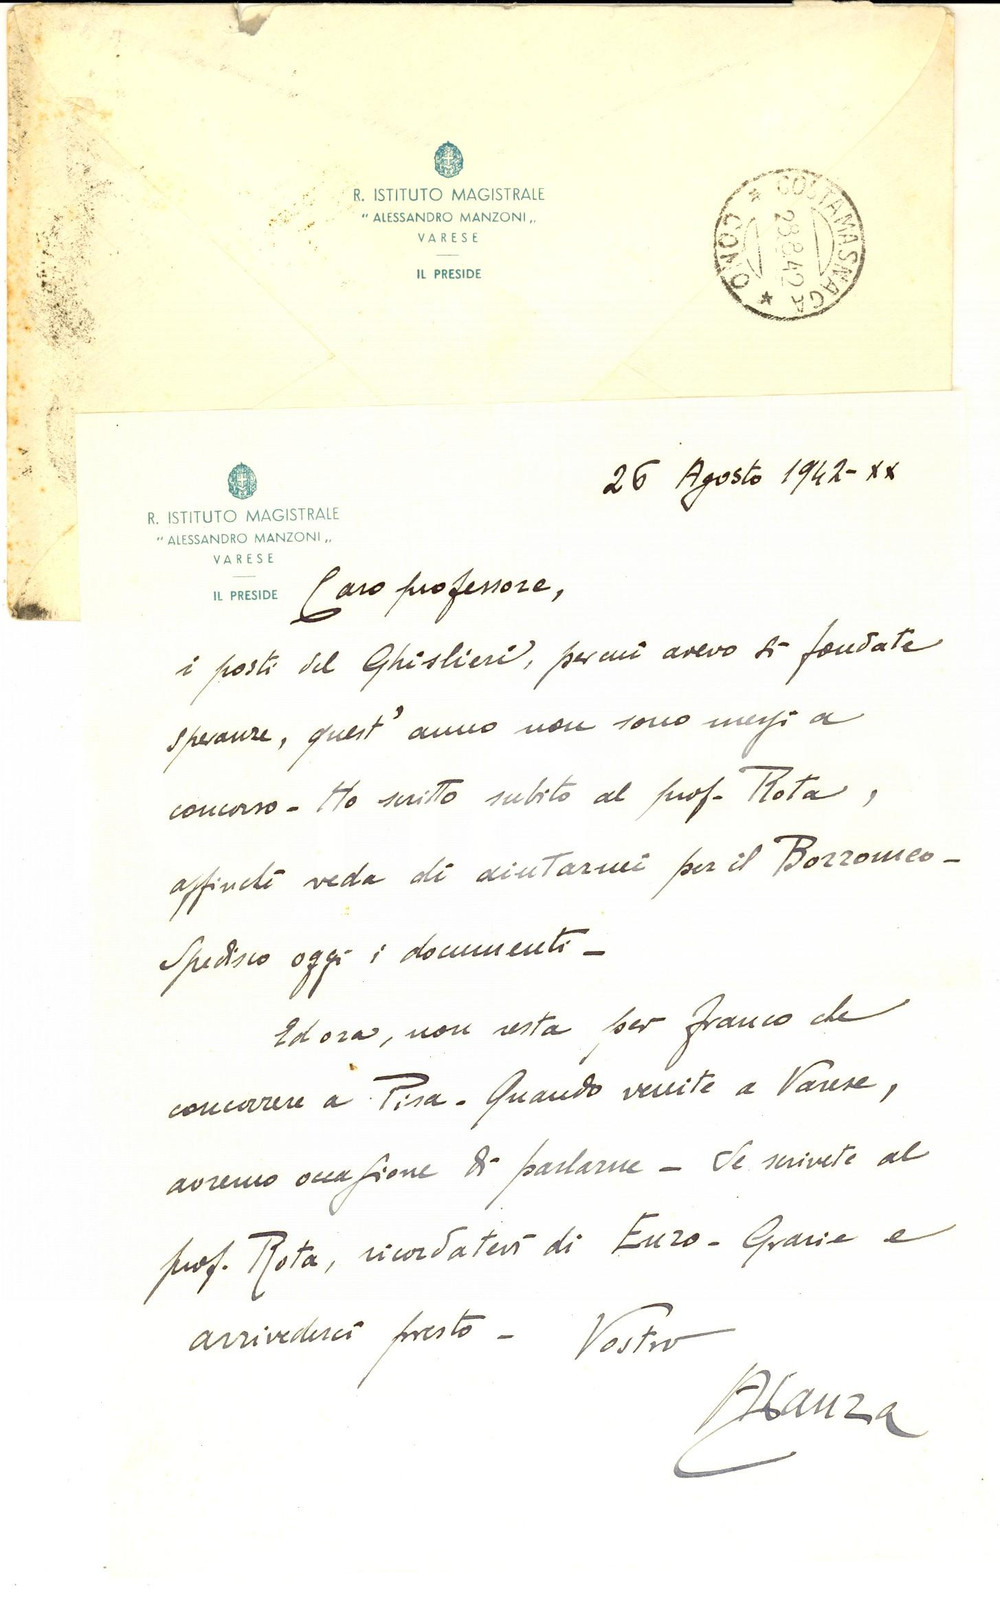 R. ISTITUTO MAGISTRALE
“ ALESSANDRO MANZONI „
VARESE
IL PRESIDE
COSTAMASNAGA
28.8.42
COMO
R. ISTITUTO MAGISTRALE
“ ALESSANDRO MANZONI „
VARESE
IL PRESIDE
26 Agosto 1942-XX
Caro professore,
i posti del Ghislieri, per cui avevo sì fondate
speranze, quest'anno non sono messi a
concorso - Ho scritto subito al prof. Rota,
affinchè veda di aiutarmi per il Borromeo -
Spedisco oggi i documenti -
Ed ora, non resta per Franco che
concorrere a Pisa - Quando venite a Varese,
avremo occasione di parlarne - Se scrivete al
prof. Rota, ricordatevi di Enzo - Grazie e
arrivederci presto - Vostro